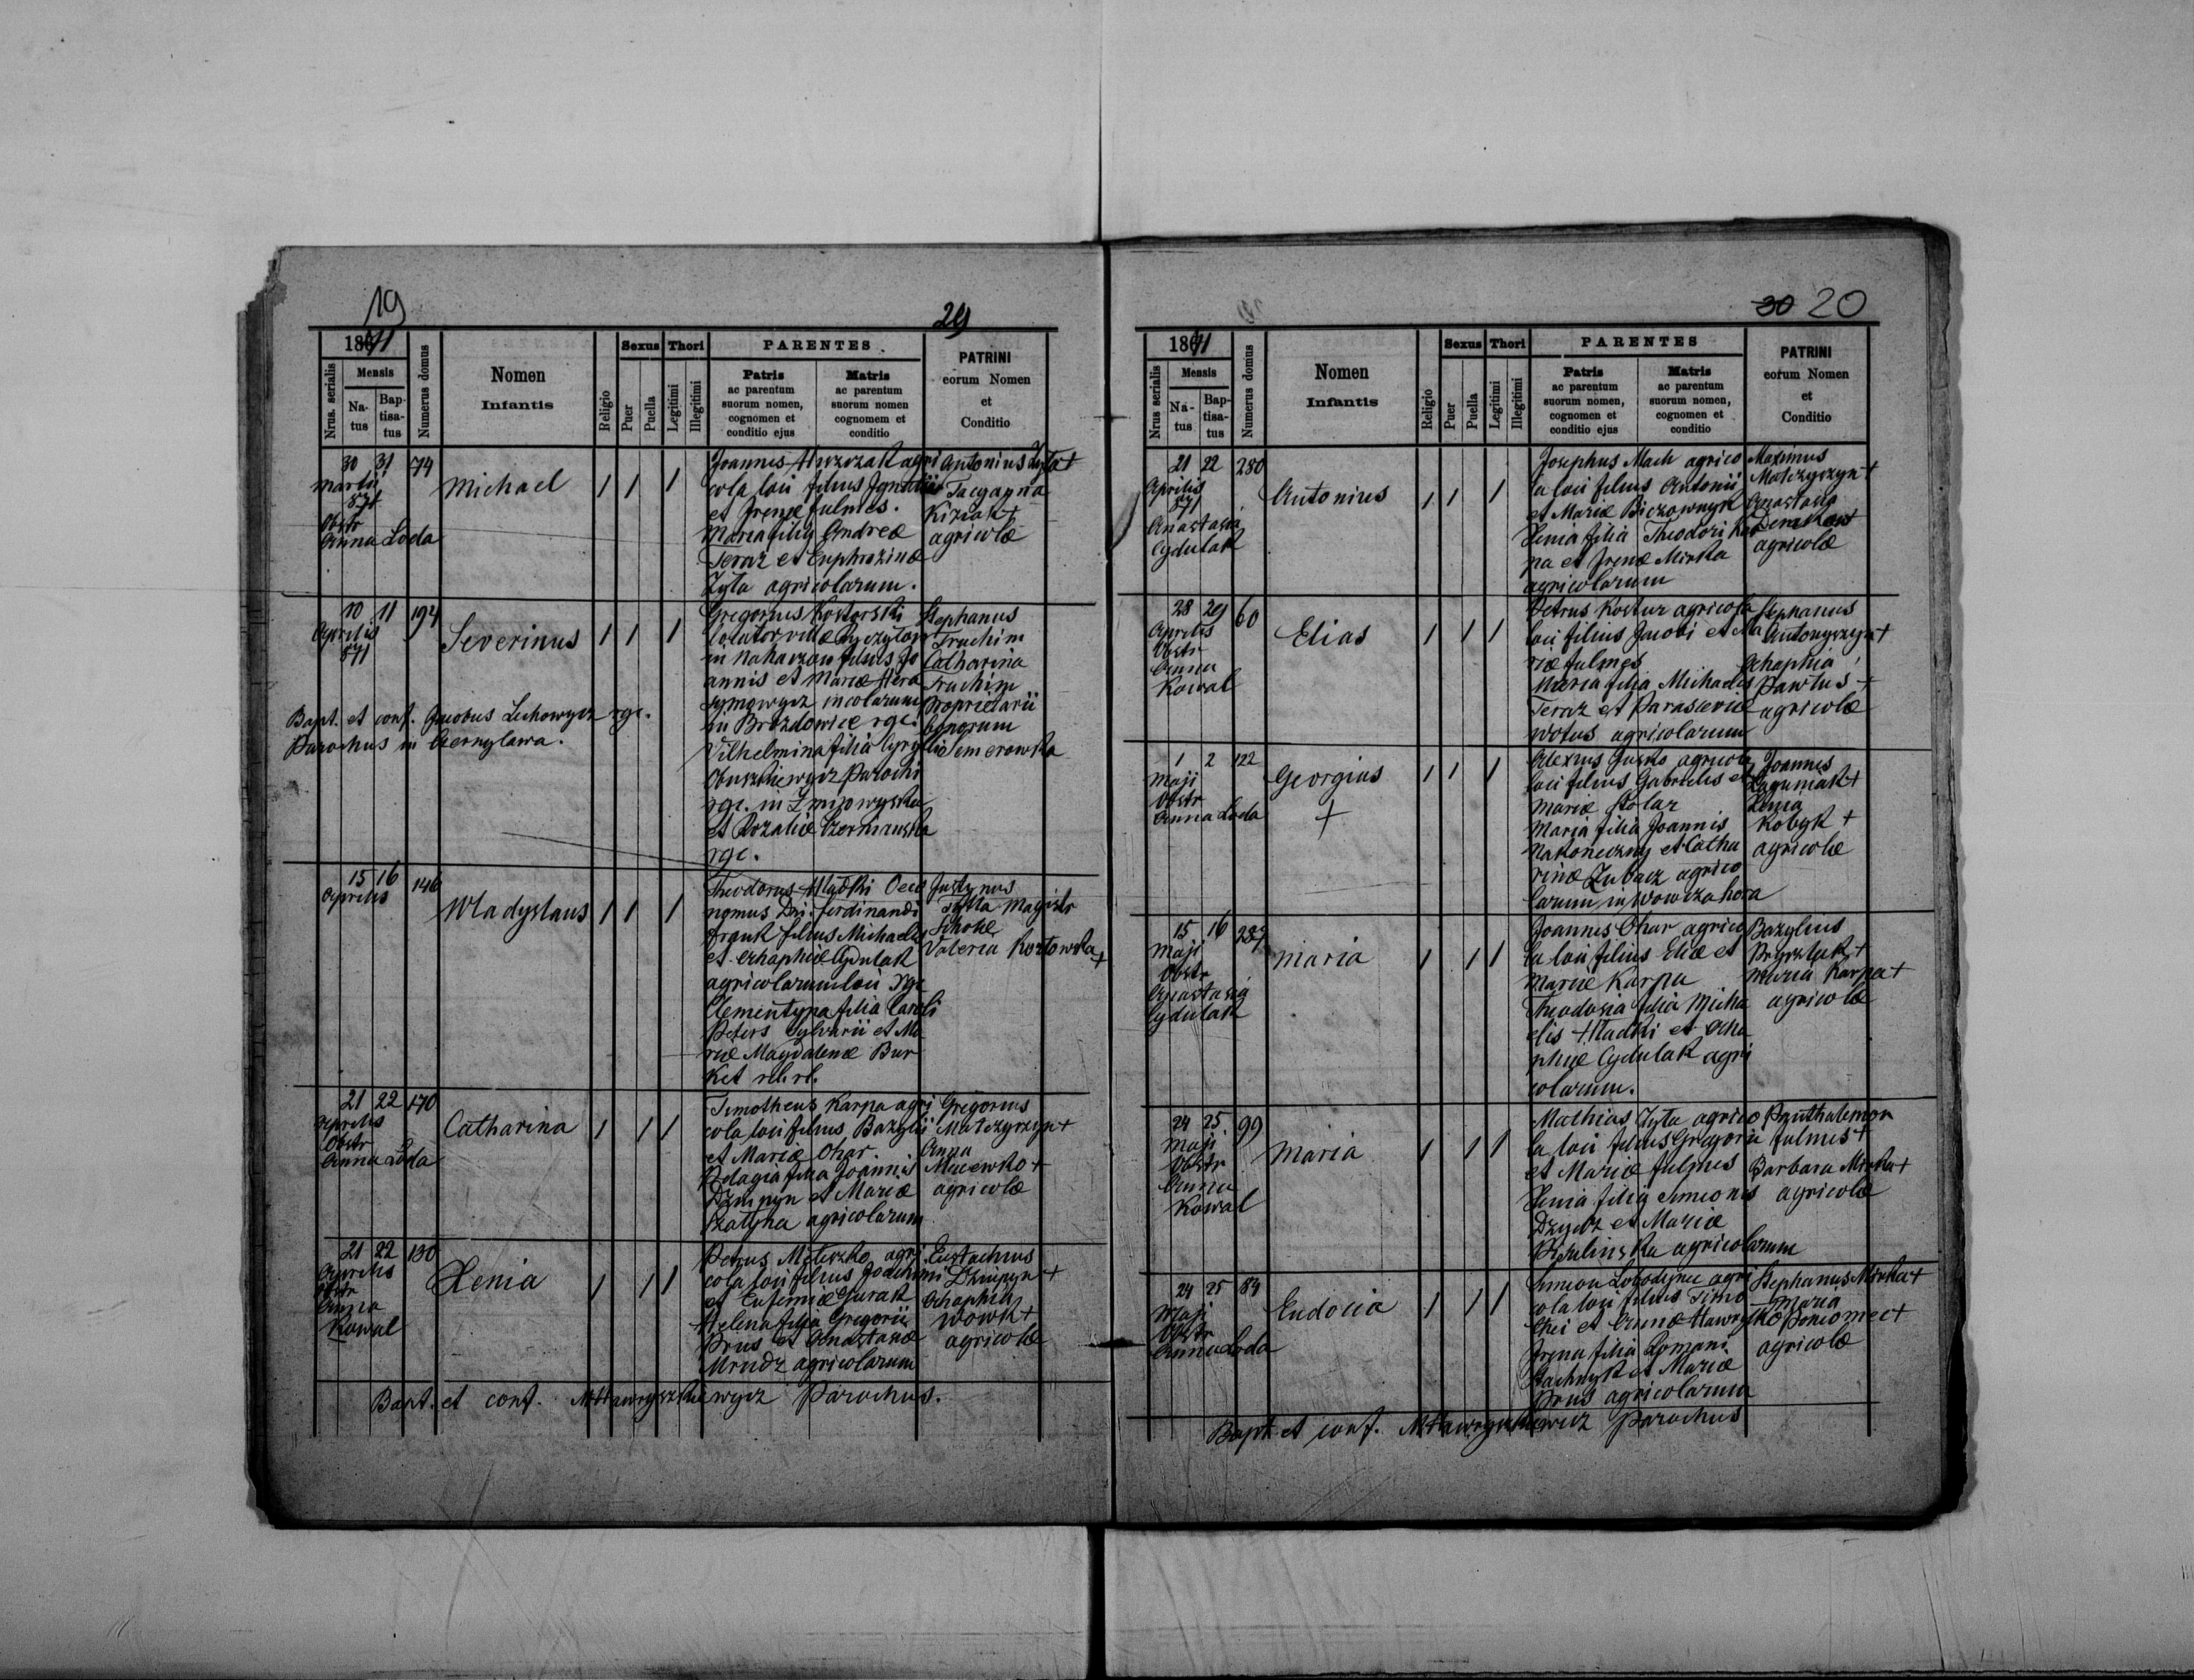 19
29
1871
Nrus. serialis
Mensis
Na-
tus
Bap-
tisa-
tus
Numerus domus
Nomen
Infantis
Religio
Sexus
Puer
Puella
Thori
Legitimi
Illegitimi
PARENTES
Patris
ac parentum
suorum nomen,
cognomen et
conditio ejus
Matris
ac parentum
suorum nomen
cognomem et
conditio
PATRINI
eorum Nomen
et
Conditio
30 31 74
Martii
871
Obstr
Anna Loda
Michael
1 1 1
Joannes agri
cola loci filius Ignatii
et Irenæ fulmes.
Maria filia Andreæ
Teraz et Euphrozinæ
Zyta agricolarum.
Antonius Zyta +
Tacyanna
Kiziak +
agricolæ
10 11 194
Aprilis
871
Severinus
1 1 1
Bapt. et conf. Jacobus Lechowycz rgc.
Parochus in Czernylawa.
Gregorius Kostorski
locator villæ
in Nahaczow filius Jo
annis et Mariæ Hera
symowycz incolarum
in Brozdowice rgc.
Vilhelmina filia Cyryli
Obuszkiewycz Parochi
rgc. in Zmijowyska
et Rozaliæ Czerniawska
rgc.
Stephanus
Truchim
Catharina
Truchim
Proprietarii
bonorum
Semerowka
15 16 146
Aprilis
Wladyslaus
1 1 1
Theodorus Hladki Oeco
nomus Dni. ferdinandi
frank filius Michaelis
et Ahaphiæ Cydulak
agricolarum loci rgc
Clementyna filia Caroli
Peters Sylvarii et Ma
riæ Magdalenæ Bur
ket rl. rl.
Justynus
Tytla Magistr
Scholæ
Valeria Kozlowska +
21 22 170
Aprilis
Obstr
Anna Loda
Catharina
1 1 1
Timotheus Karpa agri
cola loci filius Bazylii
et Mariæ Ohar.
Pelagia filia Joannis
Dzinpyn et Mariæ
agricolarum
Gregorius
Matczyszyn +
Anna
+
agricolæ
21 22 130
Aprilis
Obstr
Anna
Kowal
Xenia
1 1 1
Petrus agri
cola loci filius Joachimi
et Eufemiæ Gurak
Helena filia Gregorii
Prus et Anastasiæ
Mrudz agricolarum
Eustachius
Dzinpyn +
Ahaphia
Wowk +
agricolæ
Bapt. et conf. MHawryszkiewycz Parochus.
30 20
1871
Nrus serialis
Mensis
Na-
tus
Bap-
tisa-
tus
Numerus domus
Nomen
Infantis
Religio
Sexus
Puer
Puella
Thori
Legitimi
Illegitimi
PARENTES
Patris
ac parentum
suorum nomen,
cognomen et
conditio ejus
Matris
ac parentum
suorum nomen,
cognomen et
conditio
PATRINI
eorum Nomen
et
Conditio
21 22 280
Aprilis
871
Anastasia
Cydulak
Antonius
1 1 1
Josephus Mach agrico
la loci filius Antonii
et Mariæ Biczownyk
Xenia filia Theodori Kar
pa et Irenæ Mirka
agricolarum
Maximus
Matczyszyn +
Anastasia
Demkow +
agricolæ
28 29 60
Aprilis
Obstr
Anna
Kowal
Elias
1 1 1
Petrus Kostur agricola
loci filius Jacobi et Ma
riæ fulmes
Maria filia Michaelis
Teraz et Parasceviæ
Wotus agricolarum
Stephanus
Antonyszyn +
Ahaphia
Pawlus +
agricolæ
1 2 122
Maji
Obstr
Anna Loda
Georgius
+
1 1 1
Alexius Jusko agricola
loci filius Gabrielis et
Mariæ Stolar
Maria filia Joannis
Nakoneczny et Catha
rinæ Zubacz agrico
larum in Wowczahora
Joannes
+
Xenia
Kobyk +
agricolæ
15 16 287
Maji
Obstr
Anastasia
Cydulak
Maria
1 1 1
Joannes Ohar agrico
la loci filius Eliæ et
Mariæ Karpa
Theodosia filia Micha
elis Hladki et Aha
phiæ Cydulak agri
colarum.
Bazylius
Pryslak +
Maria Karpa +
agricolæ
24 25 99
Maji
Obstr
Anna
Kowal
Maria
1 1 1
Mathias Zyta agrico
la loci filius Gregorii
et Mariæ fulmes
Xenia filia Simeonis
Dzyndz et Mariæ
Pidulinska agricolarum
Panthalemon
fulmes +
Barbara Mirka +
agricolæ
24 25 84
Maji
Obstr
Anna Loda
Eudocia
1 1 1
Simeon Lobodynec agri
cola loci filius Timo
thei et Annæ Hawrylko
Irena filia Romani
Stachnyk et Mariæ
Prus agricolarum
Stephanus Mirka +
Maria
Poniomec +
agricolæ
Bapt. et conf. MHawryszkiewicz Parochus